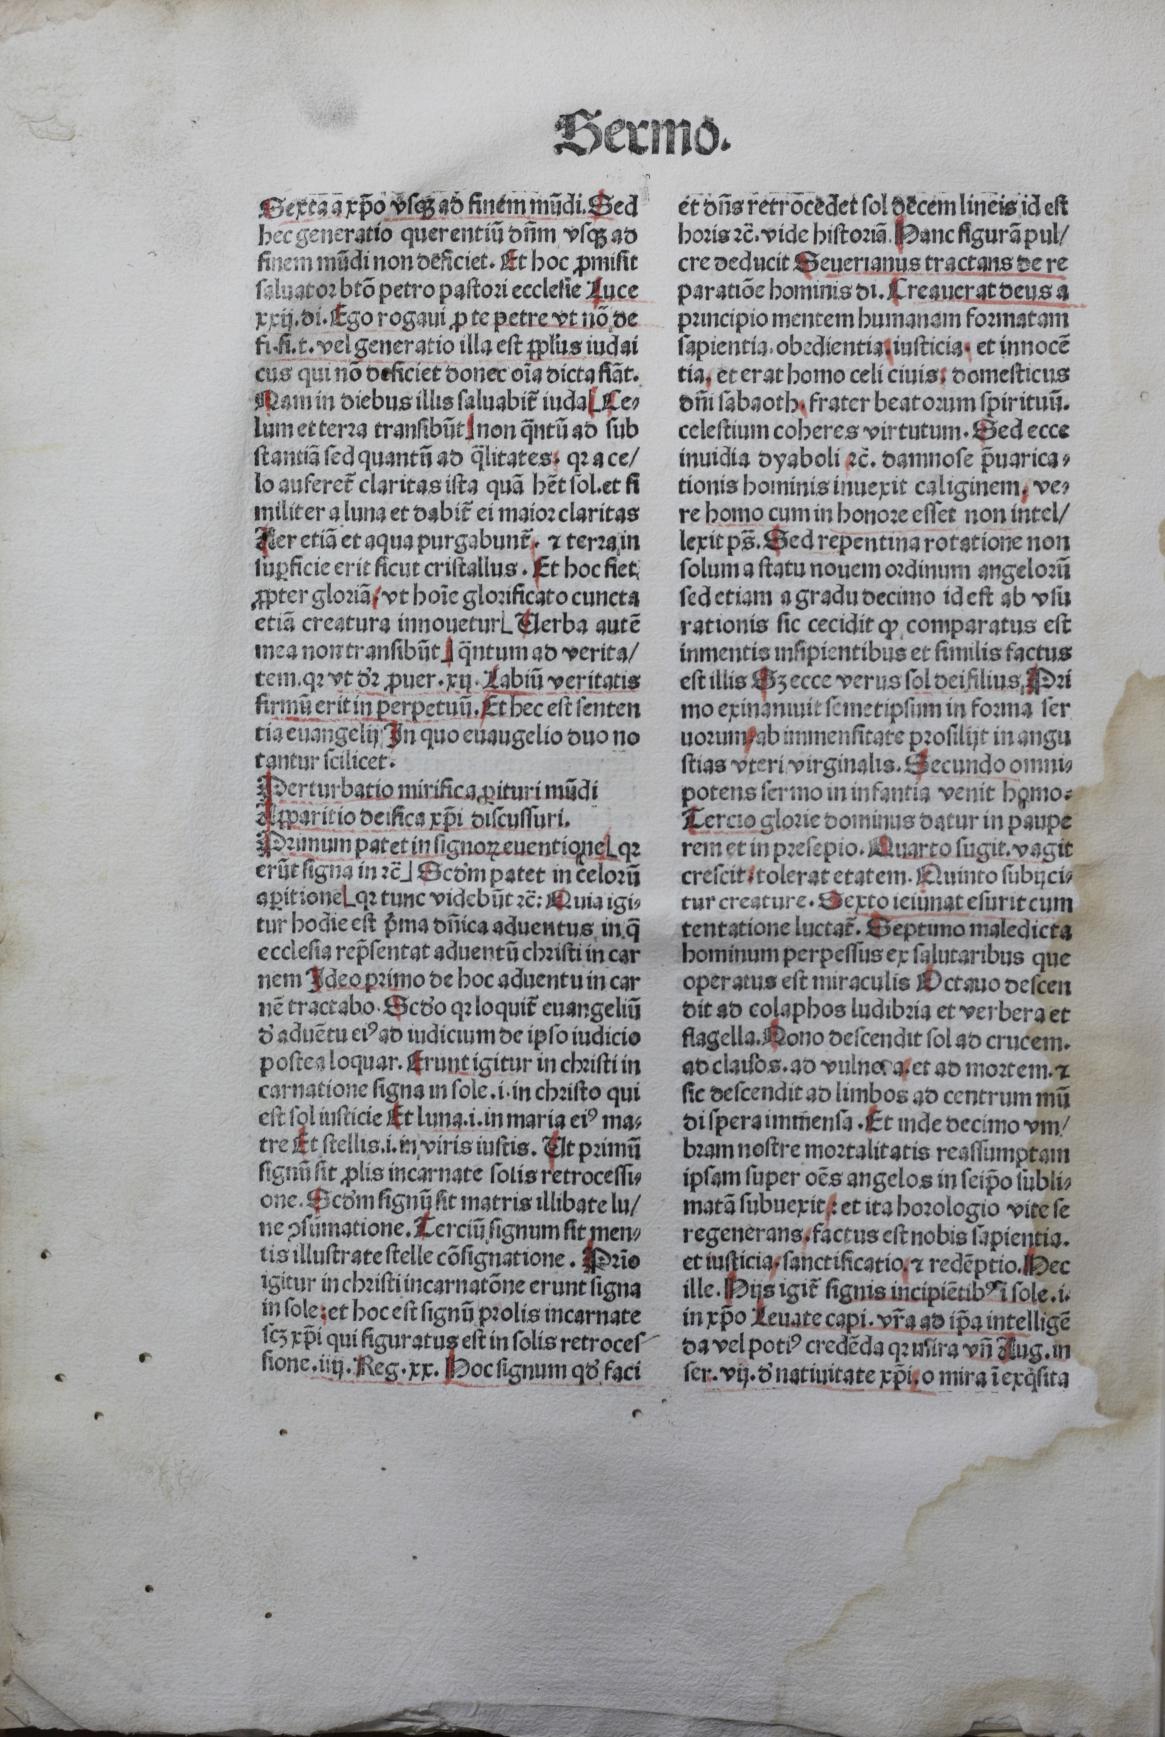 Sermo.
Sextā a xp̄o vsqꝫ ad finem mūdi. Sed
hec generatio querentiū dn̄m vsqꝫ ad
finem mūdi non deficiet. Et hoc ꝓmisit
saluator btō petro pastori ecclesie Luce
xxij. di. Ego rogaui ꝓ te petre vt nō de
fi. fi. t. vel generatio illa est pplus iudai
cus qui nō deficiet donec oīa dicta fiāt.
Nam in diebus illis saluabit᷑ iuda Ce⸗
lum et terra transibūt non q̄ntū ad sub
stantiā sed quantū ad q̄litates. qꝛ a ce/
lo auferet᷑ claritas ista quā hēt sol. et si
militer a luna et dabit᷑ ei maior claritas
Aer etiā et aqua purgabunt᷑. ⁊ terra in
suꝑficie erit sicut cristallus. Et hoc fiet
ꝓpter gloriā, vt hoīe glorificato cuncta
etiā creatura innouetur Uerba autē
mea non transibūt q̄ntum ad verita/
tem. qꝛ vt dr̄ ꝓuer. xij. Labiū veritatis
firmū erit in perpetuū. Et hec est senten
tia euangelij In quo euaugelio duo no
tantur scilicet.
Perturbatio mirifica ꝑituri mūdi
Apparitio deifica xp̄i discussuri.
Primum patet in signoꝝ euentione qꝛ
erūt signa in ⁊c̄ Scd̄m patet in celorū
aꝑitione qꝛ tunc videbūt ⁊c̄: Quia igi⸗
tur hodie est p̄ma dn̄ica aduentus, in q̄
ecclesia rep̄sentat aduentū christi in car
nem Ideo primo de hoc aduentu in car
nē tractabo. Scd̄o qꝛ loquit᷑ euangeliū
d̄ aduētu eiꝰ ad iudicium de ipso iudicio
postea loquar. Erunt igitur in christi in
carnatione signa in sole. i. in christo qui
est sol iusticie Et luna. i. in maria eiꝰ ma⸗
tre Et stellis. i. in viris iustis. Ut primū
signū sit ꝓlis incarnate solis retrocessi⸗
one. Scd̄m signū sit matris illibate lu/
ne ꝯsūmatione. Terciū signum sit men⸗
tis illustrate stelle cōsignatione. Prīo
igitur in christi incarnatōne erunt signa
in sole: et hoc est signū prolis incarnate
scꝫ xp̄i qui figuratus est in solis retroces
sione. iiij. Reg. xx. Hoc signum qd̄ faci
et dn̄s retrocēdet sol decem lineis id est
horis ⁊c̄. vide historiā. Hanc figurā pul/
cre deducit Seuerianus tractans de re
paratiōe hominis di. Creauerat deus a
principio mentem humanam formatam
sapientia. obedientia, iusticia. et innocē
tia, et erat homo celi ciuis: domesticus
dn̄i sabaoth, frater beatorum spirituū.
celestium coheres virtutum. Sed ecce
inuidia dyaboli ⁊c̄. damnose p̄uarica⸗
tionis hominis inuexit caliginem, ve⸗
re homo cum in honore esset non intel/
lexit ps̄. Sed repentina rotatione non
solum a statu nouem ordinum angelorū
sed etiam a gradu decimo id est ab vsu
rationis sic cecidit ꝙ comparatus est
inmentis insipientibus et similis factus
est illis Sꝫ ecce verus sol dei filius, Pri
mo exinaniuit semetipsum in forma ser
uorum, ab immensitate prosilijt in angu
stias vteri virginalis. Secundo omni⸗
potens sermo in infantia venit homo.
Tercio glorie dominus datur in paupe
rem et in presepio. Quarto sugit. vagit
crescit: tolerat etatem. Quinto subijci⸗
tur creature. Sexto ieiunat esurit cum
tentatione luctat᷑. Septimo maledicta
hominum perpessus ex salutaribus que
operatus est miraculis Octauo descen
dit ad colaphos ludibria et verbera et
flagella. Nono descendit sol ad crucem.
ad clauos. ad vulnera. et ad mortem. ⁊
sic descendit ad limbos ad centrum mū
di spera immensa. Et inde decimo vm/
bram nostre mortalitatis reassumptam
ipsam super oēs angelos in seip̄o subli⸗
matā subuexit: et ita horologio vite se
regenerans, factus est nobis sapientia.
et iusticia, sanctificatio, ⁊ redēptio. Hec
ille. Hijs igit᷑ signis incipiētibꝰ ī sole. i.
in xp̄o Leuate capi. vr̄a ad ip̄a intelligē
da vel potiꝰ credēda qꝛ mira vn̄ Aug. in
ser. vij. d̄ natiuitate xp̄i, o mira ī exq̄sita